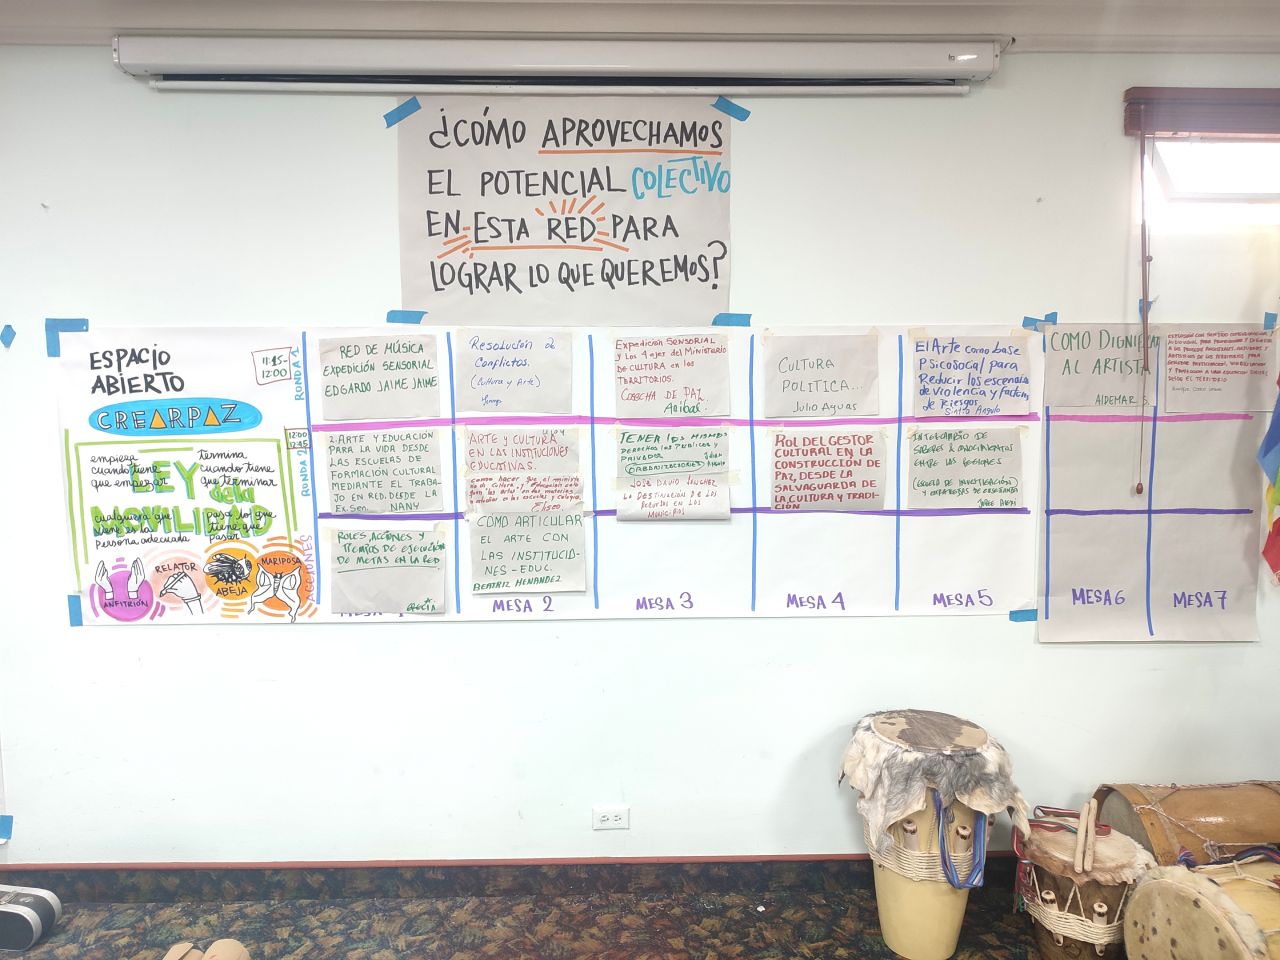 ¿CÓMO APROVECHAMOS
EL POTENCIAL COLECTIVO
EN ESTA RED PARA
LOGRAR LO QUE QUEREMOS?
ESPACIO
ABIERTO
11:15-
12:00
RONDA 1
CREARPAZ
12:00
12:45
RONDA 2
LEY
de la
MOVILIDAD
empieza
cuando tiene
que empezar
termina
cuando tiene
que terminar
cualquiera que
viene es la
persona adecuada
pasa lo que
tiene que
pasar
ANFITRIÓN
RELATOR
ABEJA
MARIPOSA
ACCIONES
RED DE MÚSICA
EXPEDICIÓN SENSORIAL
EDGARDO JAIME JAIME
2. ARTE Y EDUCACIÓN
PARA LA VIDA DESDE
LAS ESCUELAS DE
FORMACIÓN CULTURAL
MEDIANTE EL TRABA-
JO EN RED. DESDE LA
EX. SEN. NANY
ROLES, ACCIONES Y
TIEMPOS DE EJECUCIÓN
DE METAS EN LA RED
Resolución de
Conflictos.
(Cultura y Arte)
ARTE Y CULTURA
EN LAS INSTITUCIONES
EDUCATIVAS.
como hacer que el ministe
Eliseo
CÓMO ARTICULAR
EL ARTE CON
LAS INSTITUCIO-
NES-EDUC.
BEATRIZ HENANDEZ
MESA 2
Expedición SENSORIAL
y los 4 ejes del Ministerio
DE CULTURA en los
TERRITORIOS.
COSECHA DE PAZ
Anibas.
TENER LOS MISMOS
DERECHOS LOS PUBLICOS Y
PRIVADOS
ORGANIZACIONES
JOSE DAVID SANCHEZ
LA DESTINACION DE LOS
RECURSOS EN LOS
MUNICIPIOS
MESA 3
CULTURA
POLITICA...
Julio Aguas
ROL DEL GESTOR
CULTURAL EN LA
CONSTRUCCIÓN DE
PAZ, DESDE LA
SALVAGUARDA DE
LA CULTURA Y TRADI-
CIÓN
MESA 4
El Arte como base
Psicosocial para
Reducir los escenarios
de violencia y factores
de Riesgos
Sixto Angulo
INTERCAMBIO DE
SABERES & CONOCIMIENTOS
ENTRE LAS REGIONES
MESA 5
COMO DIGNIFICAR
AL ARTISTA
AIDEMAR S.
MESA 6
DESDE EL TERRITORIO
MESA 7